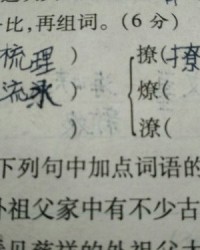 一比,再组词。(6分)
梳理 ) 撩(撩
流 ) 燎(
) 潦(
下列句中加点词语的
外祖父家中有不少古